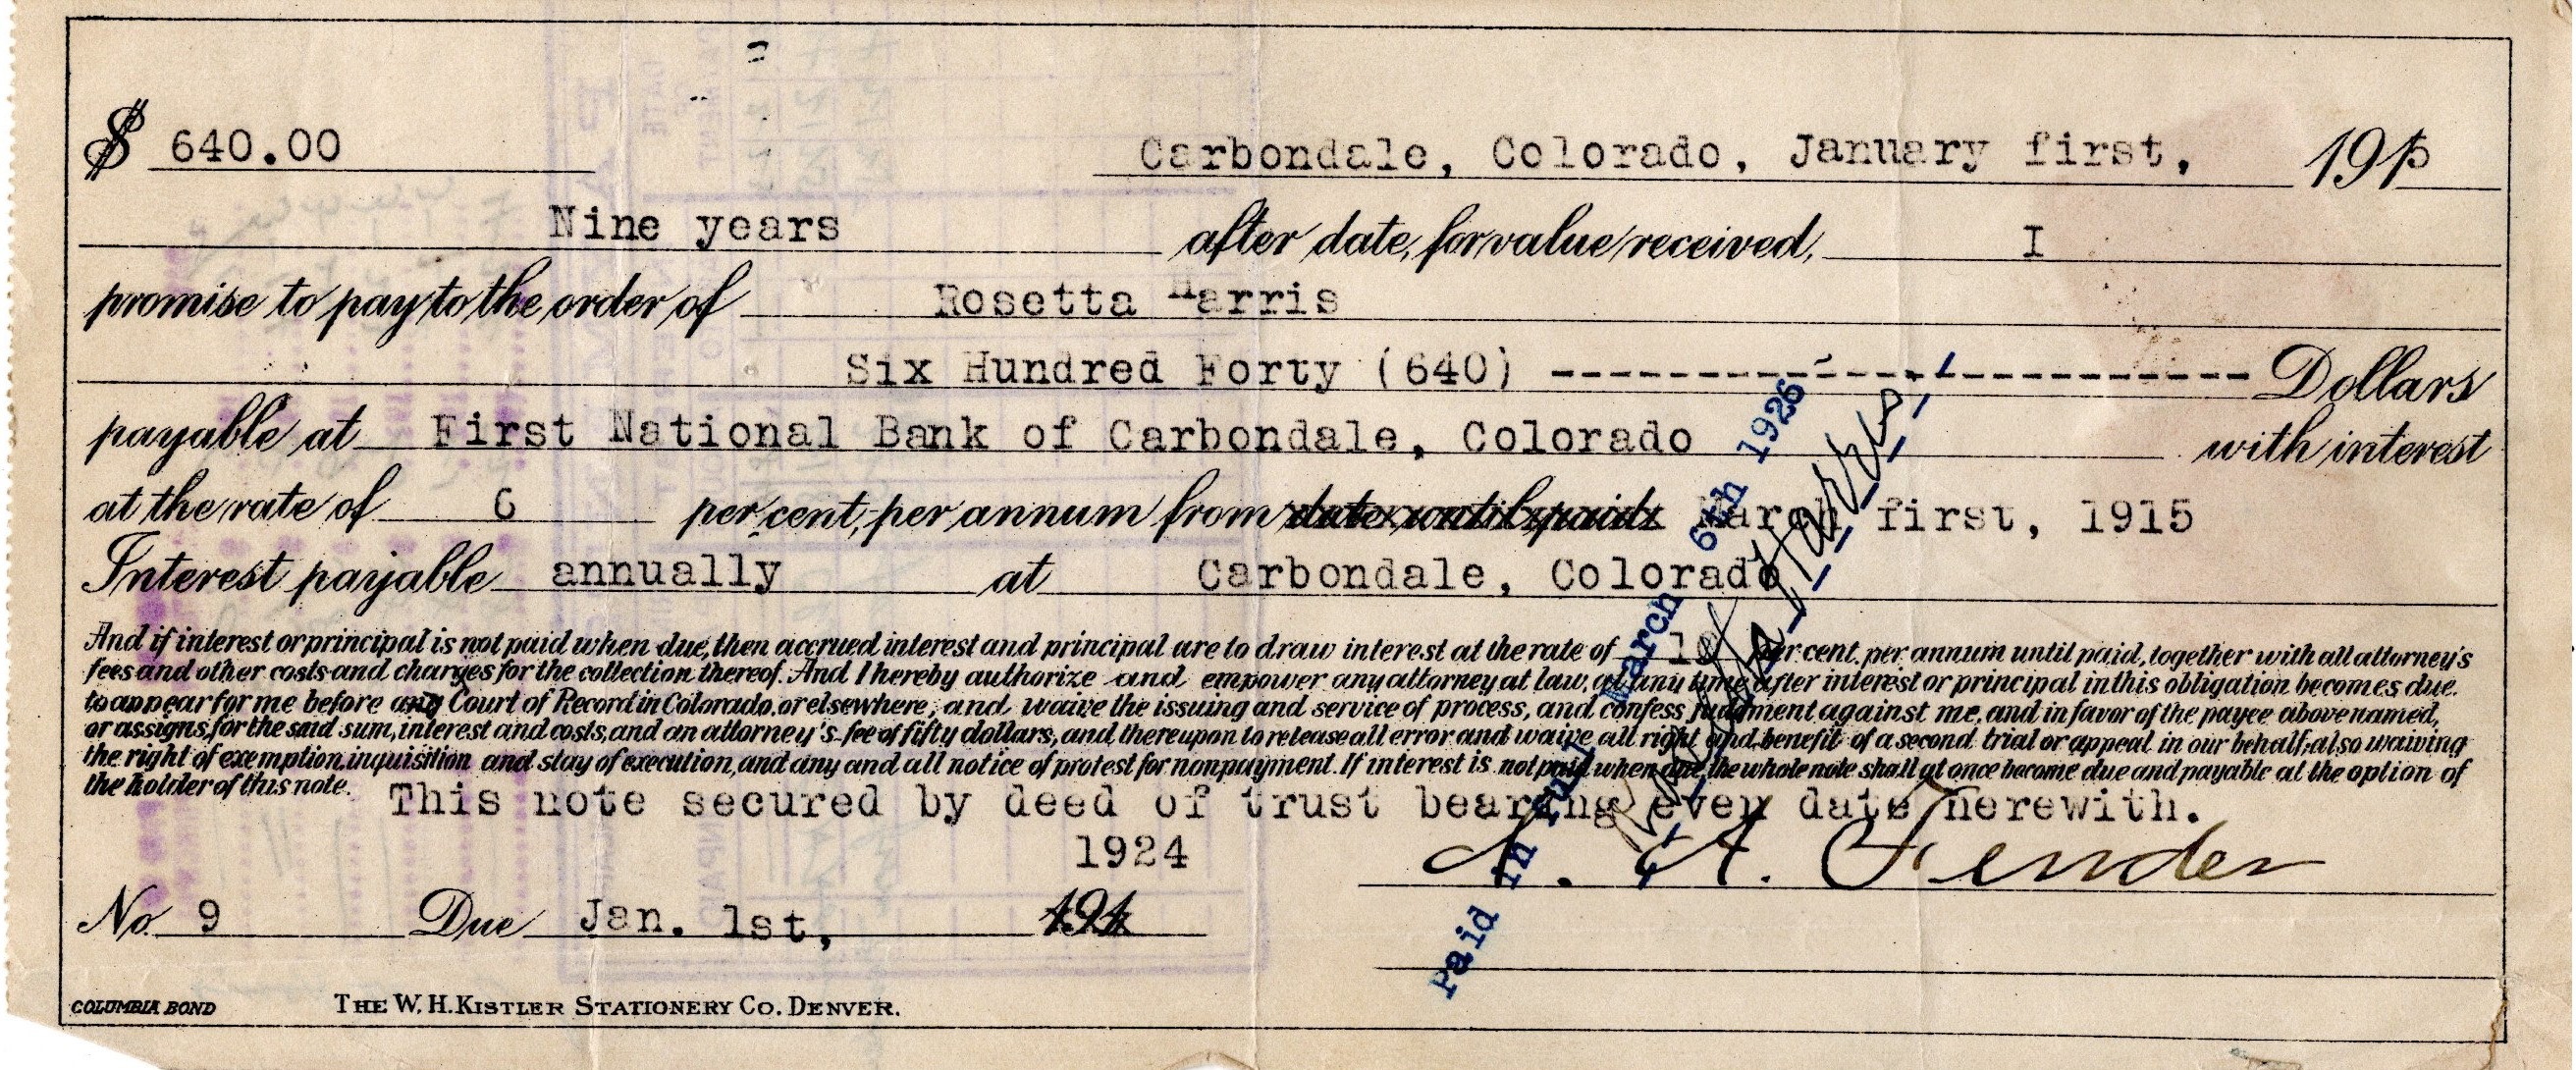 $ 640.00 Carbondale, Colorado, January first, 1915
Nine years after date, for value received, I
promise to pay to the order of Rosetta Harris
Six Hundred Forty (640) ------------------------ Dollars
payable at First National Bank of Carbondale, Colorado with interest
at the rate of 6 per cent, per annum from date until paid March first, 1915
Interest payable annually at Carbondale, Colorado
And if interest or principal is not paid when due, then accrued interest and principal are to draw interest at the rate of 10 per cent. per annum until paid, together with all attorney's
fees and other costs and charges for the collection thereof. And I hereby authorize and empower any attorney at law, at any time after interest or principal in this obligation becomes due.
to appear for me before any Court of Record in Colorado, or elsewhere, and waive the issuing and service of process, and confess judgment against me, and in favor of the payee above named,
or assigns, for the said sum, interest and costs, and an attorney's fee of fifty dollars, and thereupon to release all error and waive all right and benefit of a second trial or appeal in our behalf, also waiving
the right of exemption, inquisition and stay of execution, and any and all notice of protest for nonpayment. If interest is not paid when due, the whole note shall at once become due and payable at the option of
the holder of this note. This note secured by deed of trust bearing even date herewith.
1924
A. Fender
No. 9 Due Jan. 1st, 191
Paid in full March 6th 1926
Rosetta Harris
COLUMBIA BOND THE W. H. KISTLER STATIONERY CO. DENVER.